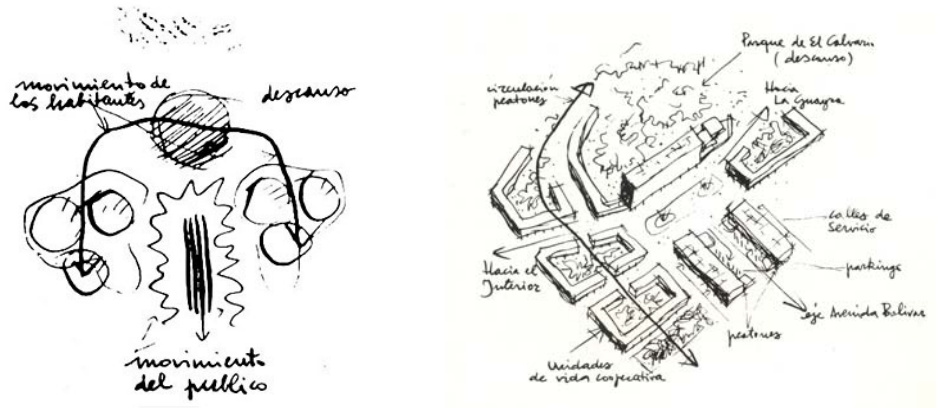 movimiento de
los habitantes
descanso
movimiento
del publico
Parque de El Calvario
(descanso)
circulación
peatones
Hacia
La Guayra
calles de
Servicio
parkings
Hacia el
Interior
eje Avenida Bolivar
peatones
Unidades
de vida cooperativa